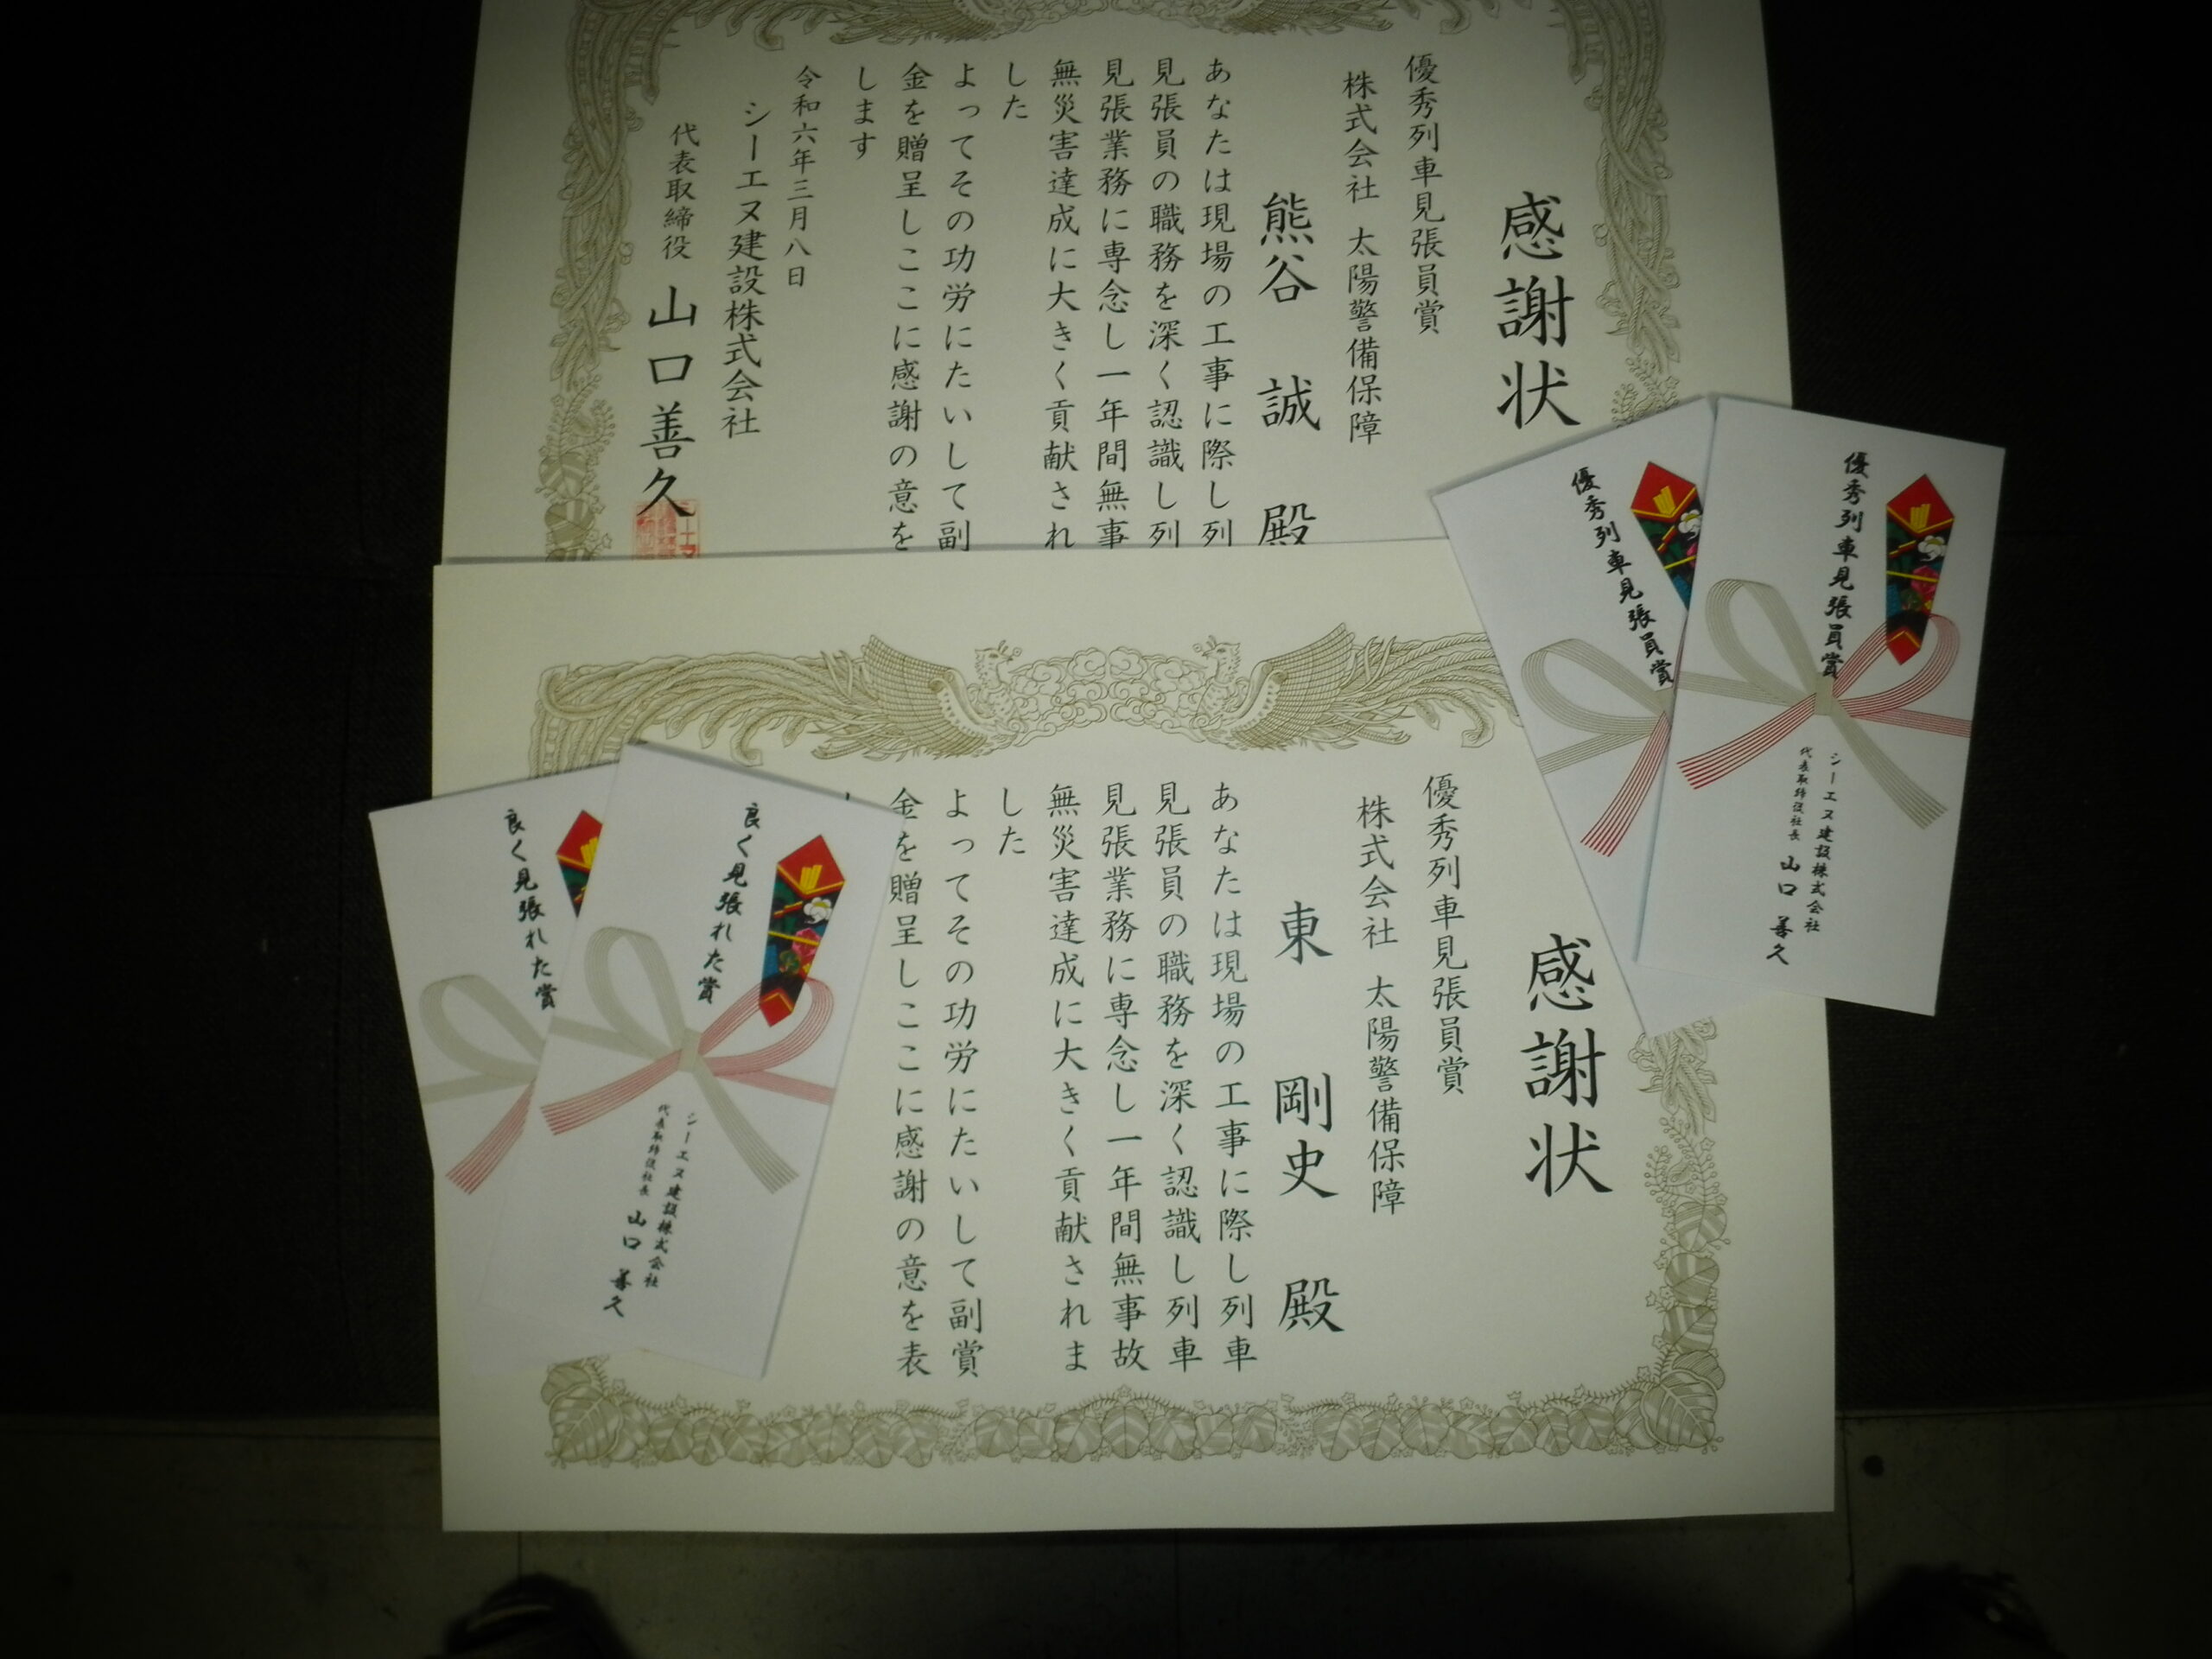 感謝状
優秀列車見張員賞
株式会社 太陽警備保障
熊谷 誠 殿
あなたは現場の工事に際し列
見張員の職務を深く認識し列
見張業務に専念し一年間無事
無災害達成に大きく貢献され
した
よってその功労にたいして副
金を贈呈しここに感謝の意を
します
令和六年三月八日
シーエヌ建設株式会社
代表取締役 山口善久
感謝状
優秀列車見張員賞
株式会社 太陽警備保障
東 剛史 殿
あなたは現場の工事に際し列車
見張員の職務を深く認識し列車
見張業務に専念し一年間無事故
無災害達成に大きく貢献されま
した
よってその功労にたいして副賞
金を贈呈しここに感謝の意を表
優秀列車見張員賞
シーエヌ建設株式会社
代表取締役社長 山口 善久
優秀列車見張員賞
良く見張れた賞
シーエヌ建設株式会社
代表取締役社長 山口 善久
良く見張れた賞